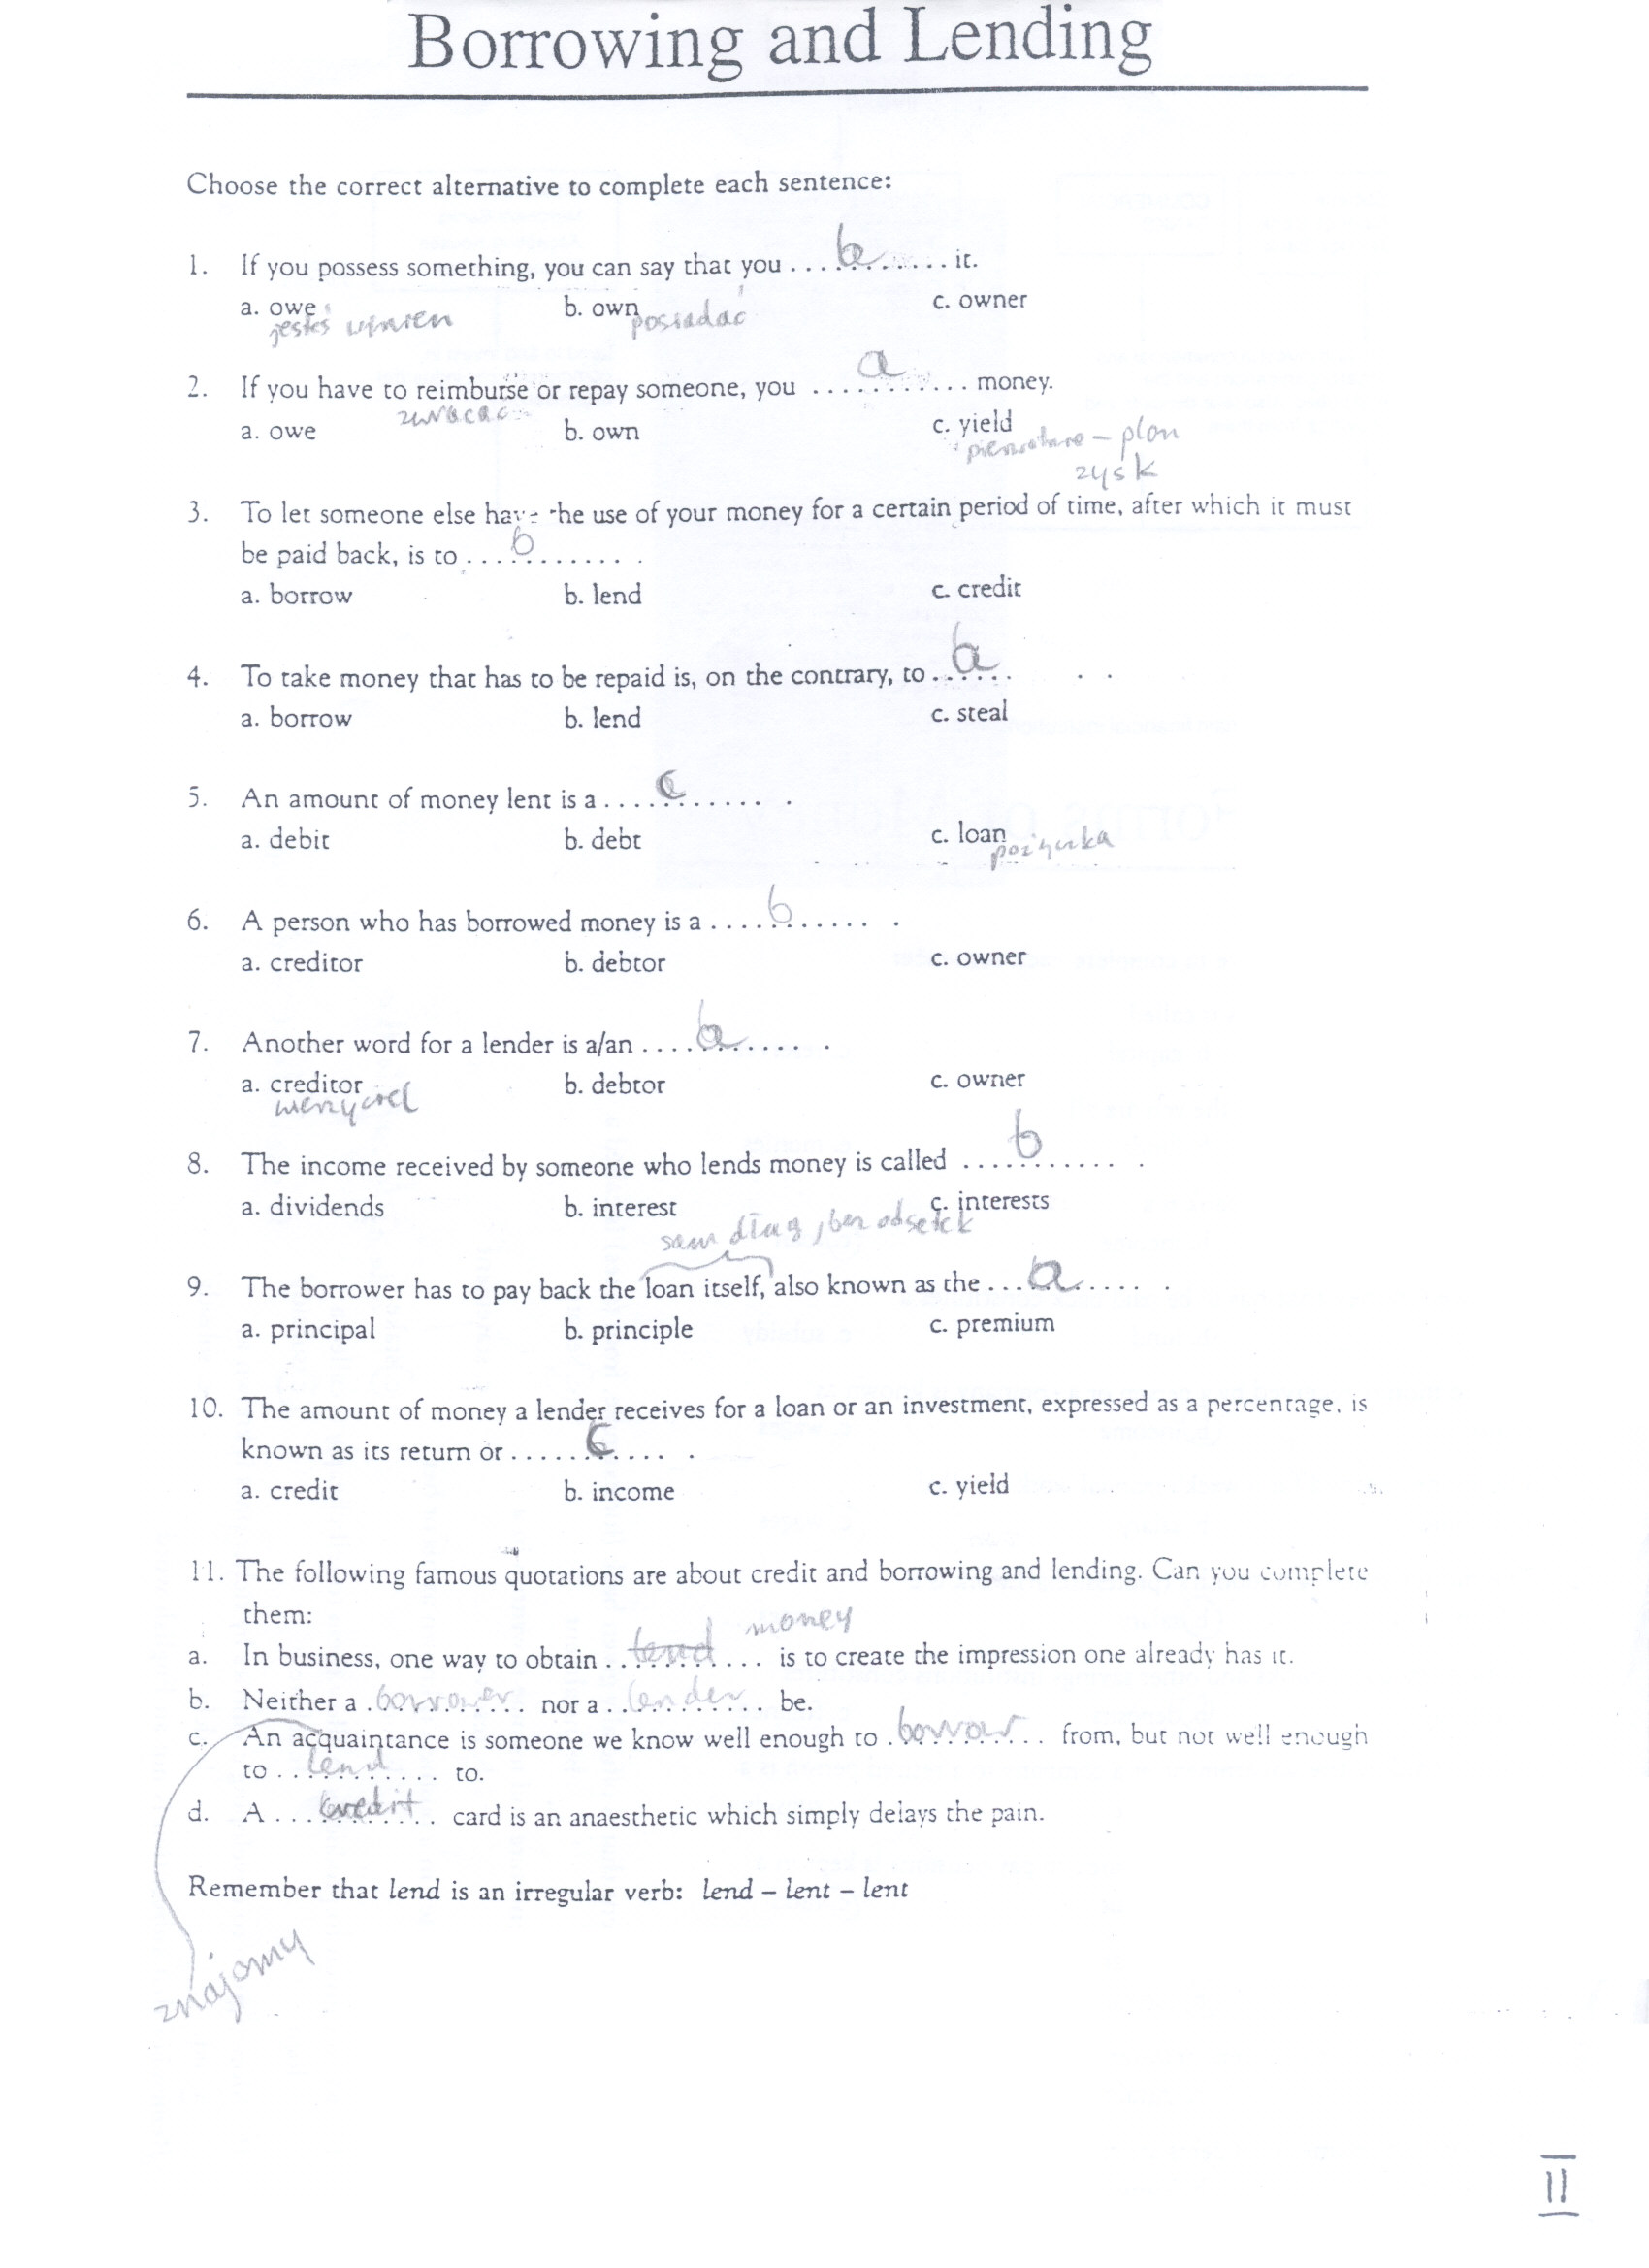 Borrowing and Lending
Choose the correct alternative to complete each sentence:
1. If you possess something, you can say that you ..... b ..... it.
a. owe b. own c. owner
jesteś winien posiadać
2. If you have to reimburse or repay someone, you ..... a ..... money.
zwracać
a. owe b. own c. yield
pierwotnie – plon
zysk
3. To let someone else have the use of your money for a certain period of time, after which it must
be paid back, is to ..... b ..... .
a. borrow b. lend c. credit
4. To take money that has to be repaid is, on the contrary, to ..... a ..... .
a. borrow b. lend c. steal
5. An amount of money lent is a ..... c ..... .
a. debit b. debt c. loan
pożyczka
6. A person who has borrowed money is a ..... b ..... .
a. creditor b. debtor c. owner
7. Another word for a lender is a/an ..... a ..... .
a. creditor b. debtor c. owner
wierzyciel
8. The income received by someone who lends money is called ..... b ..... .
a. dividends b. interest c. interests
sam dług, bez odsetek
9. The borrower has to pay back the loan itself, also known as the ..... a ..... .
a. principal b. principle c. premium
10. The amount of money a lender receives for a loan or an investment, expressed as a percentage, is
known as its return or ..... c ..... .
a. credit b. income c. yield
11. The following famous quotations are about credit and borrowing and lending. Can you complete
them:
money
a. In business, one way to obtain .. lend .. is to create the impression one already has it.
b. Neither a .borrower. nor a .lender. be.
c. An acquaintance is someone we know well enough to .borrow. from, but not well enough
to .. lend .. to.
d. A ... credit ... card is an anaesthetic which simply delays the pain.
Remember that lend is an irregular verb: lend – lent – lent
znajomy
II